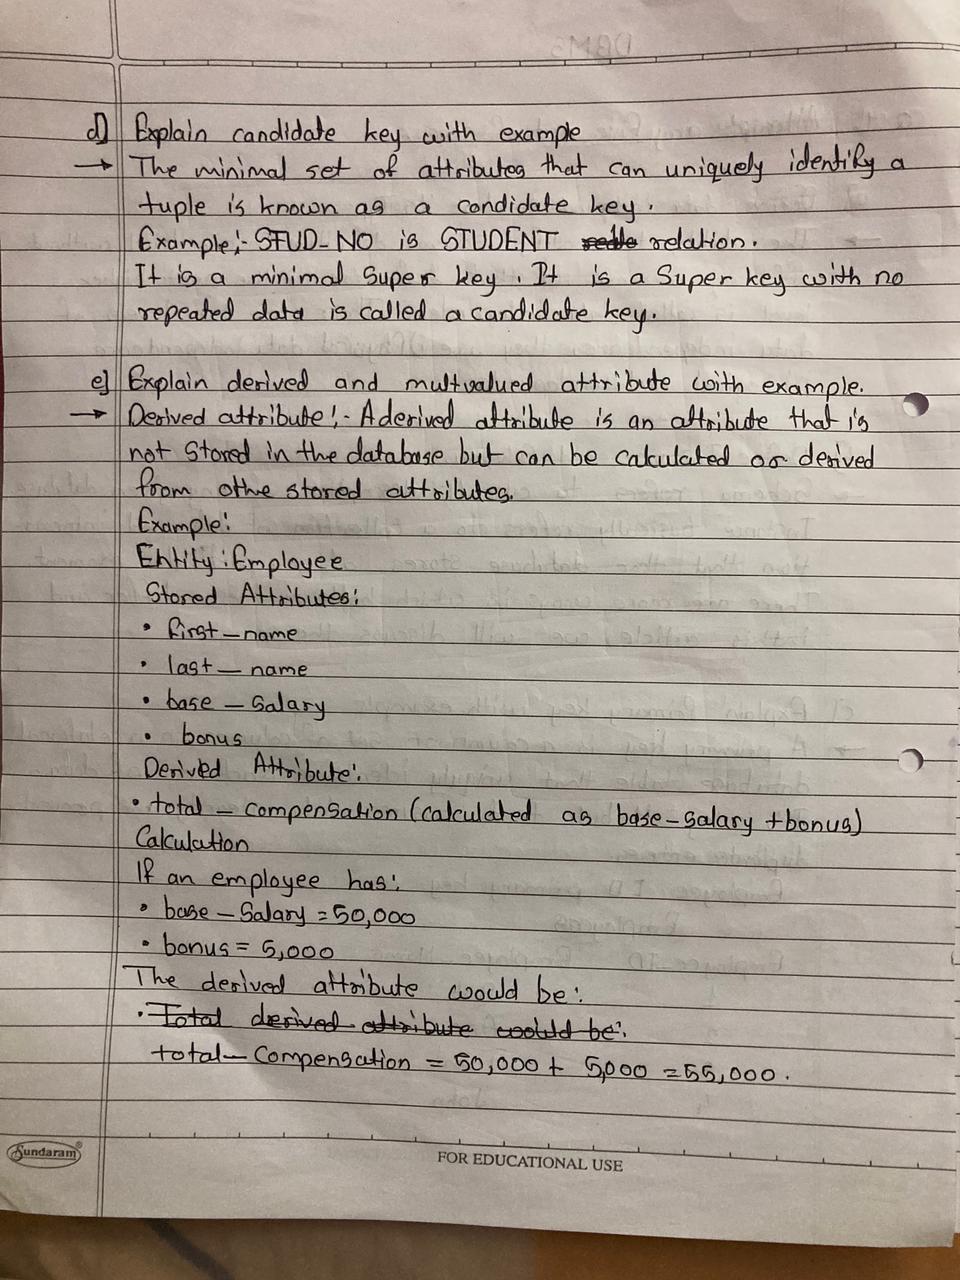 DBMS
d] Explain candidate key with example
→ The minimal set of attributes that can uniquely identify a
tuple is known as a candidate key.
Example:- STUD_NO is STUDENT relation.
It is a minimal Super key. It is a Super key with no
repeated data is called a candidate key.
e] Explain derived and multvalued attribute with example.
→ Derived attribute:- A derived attribute is an attribute that is
not Stored in the database but can be calculated or derived
from othe stored attributes.
Example:
Entity: Employee
Stored Attributes:
• first_name
• last_name
• base_salary
• bonus
Derived Attribute:
• total_compensation (calculated as base_salary + bonus)
Calculation
If an employee has:
• base_Salary = 50,000
• bonus = 5,000
The derived attribute would be:
• Total derived attribute would be:
total_compensation = 50,000 + 5,000 = 55,000.
Sundaram®
FOR EDUCATIONAL USE